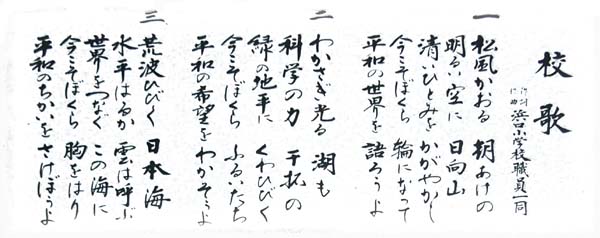 校歌
浜口小学校職員一同
一
松風かおる 朝あけの
明るい空に 日向山
清いひとみを かがやかし
今こそぼくら 輪になって
平和の世界を 語ろうよ
二
わかさぎ光る 湖も
科学の力 干拓の
緑の地平に くわひびく
今こそぼくら ふるいたち
平和の希望を わかそうよ
三
荒波ひびく 日本海
水平はるか 雲は呼ぶ
世界をつなぐ この海に
今こそぼくら 胸をはり
平和のちかいを さけぼうよ